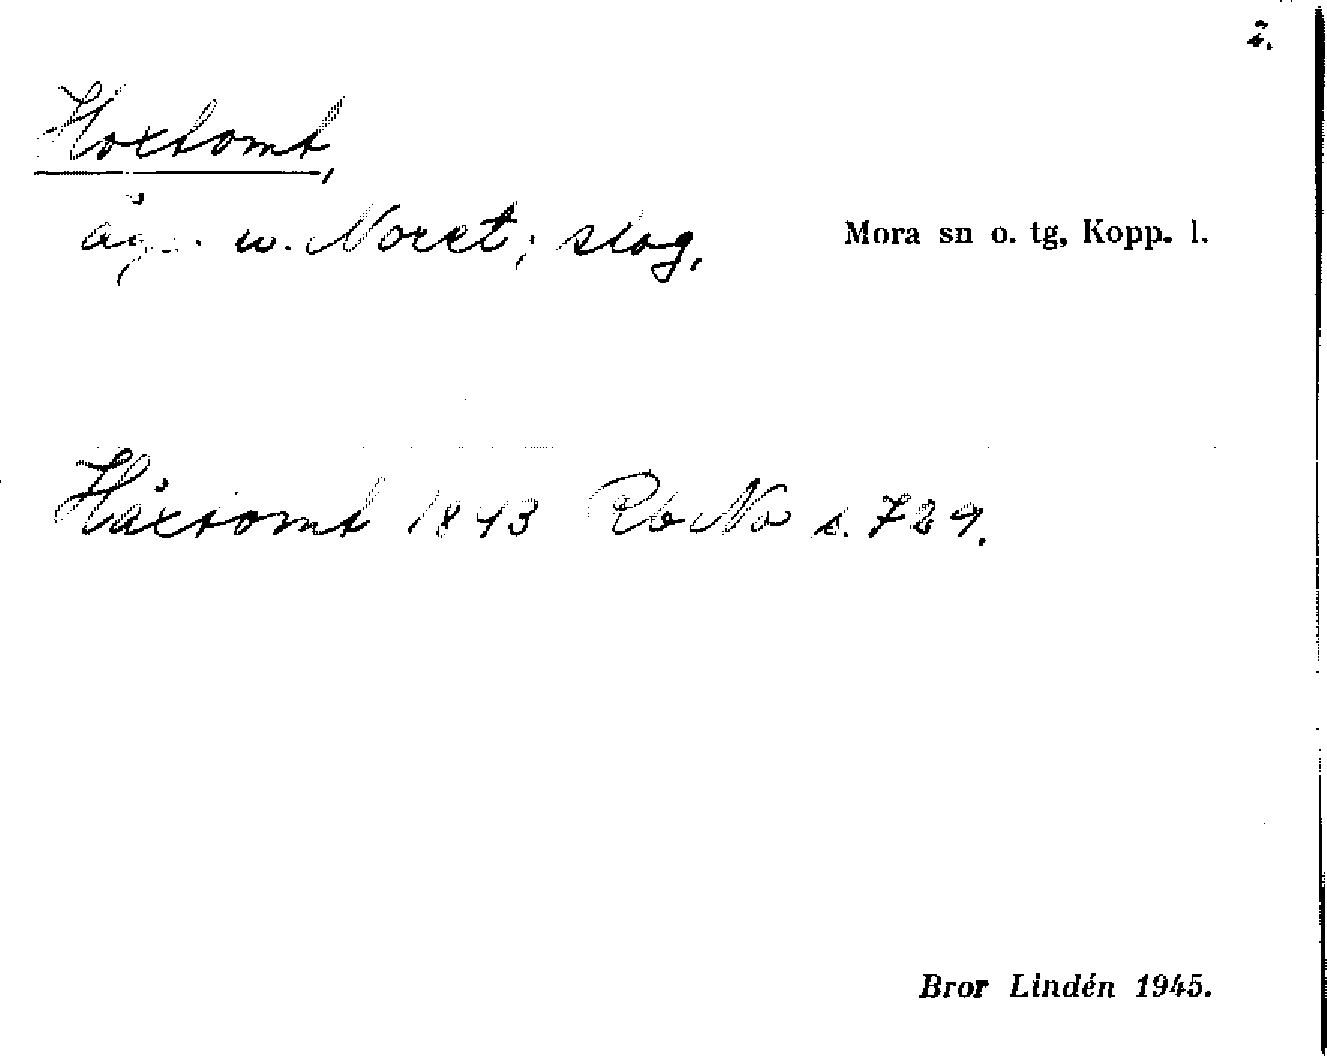 2.
Hoxtomt,
äg. u. Noret; slog. Mora sn o. tg, Kopp. l.
Håxtomt 1843 Rb No s. 729.
Bror Lindén 1945.